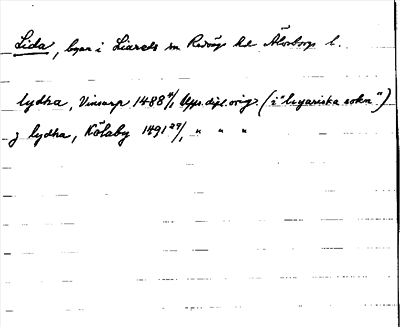 Lida, byar i Liareds sn Redvägs hd Älvsborgs l.
lydha, Vinsarp 1488 4/1 Upps. dipl. orig. (i "lyariska sokn")
j lydha, Kölaby 1491 27/1 " " "